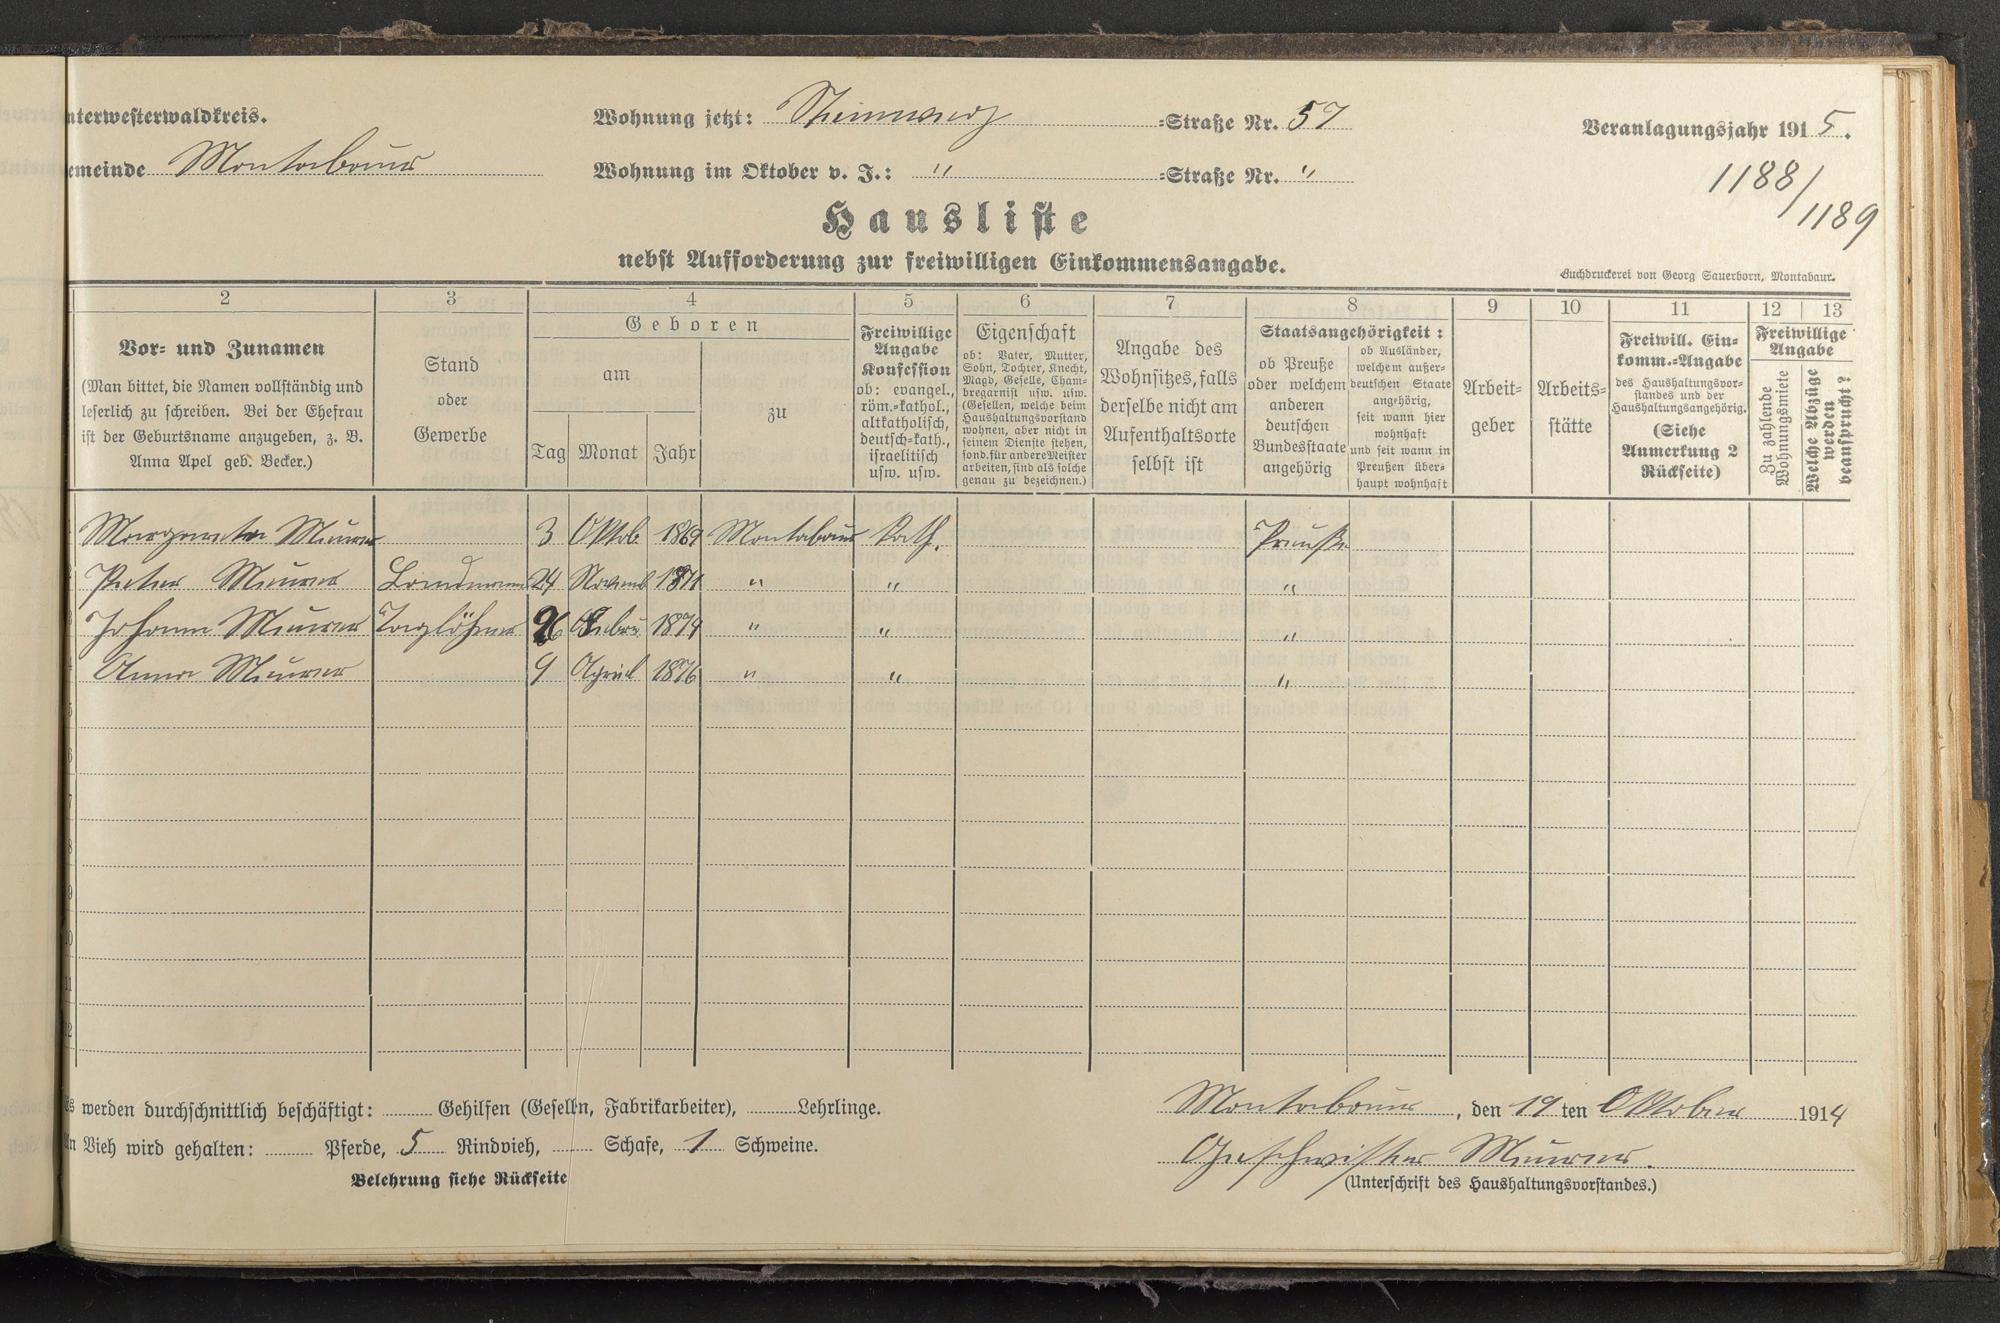 nterwesterwaldkreis.
Wohnung jetzt: Steinweg =Straße Nr. 57
Veranlagungsjahr 1915.
emeinde Montabaur
Wohnung im Oktober v. J.: " =Straße Nr. "
1188/1189
Hausliste
nebst Aufforderung zur freiwilligen Einkommensangabe.
Buchdruckerei von Georg Sauerborn, Montabaur.
2 3 4 5 6 7 8 9 10 11 12 13
Vor- und Zunamen
(Man bittet, die Namen vollständig und
leserlich zu schreiben. Bei der Ehefrau
ist der Geburtsname anzugeben, z. B.
Anna Apel geb. Becker.)
Stand
oder
Gewerbe
Geboren
am
Tag Monat Jahr
zu
Freiwillige
Angabe
Konfession
ob: evangel.,
röm.-kathol.,
altkatholisch,
deutsch-kath.,
israelitisch
usw. usw.
Eigenschaft
ob: Vater, Mutter,
Sohn, Tochter, Knecht,
Magd, Geselle, Cham-
bregarnist usw. usw.
(Gesellen, welche beim
Haushaltungsvorstand
wohnen, aber nicht in
seinem Dienste stehen,
sond. für andere Meister
arbeiten, sind als solche
genau zu bezeichnen.)
Angabe des
Wohnsitzes, falls
derselbe nicht am
Aufenthaltsorte
selbst ist
Staatsangehörigkeit:
ob Preuße
oder welchem
anderen
deutschen
Bundesstaate
angehörig
ob Ausländer,
welchem außer-
deutschen Staate
angehörig,
seit wann hier
wohnhaft
und seit wann in
Preußen über-
haupt wohnhaft
Arbeit-
geber
Arbeits-
stätte
Freiwill. Ein-
komm.-Angabe
des Haushaltungsvor-
standes und der
Haushaltungsangehörig.
(Siehe
Anmerkung 2
Rückseite)
Freiwillige
Angabe
Zu zahlende
Wohnungsmiete
Welche Abzüge
werden
beansprucht?
Margareta Meurer 3 Oktob 1869 Montabaur Kath. Preuße
Peter Meurer Landmann 24 Novemb 1871 " " "
Johann Meurer Taglöhner 26 Febru 1874 " " "
Anna Meurer 9 April 1876 " " "
5
6
7
8
9
10
11
12
s werden durchschnittlich beschäftigt: Gehilfen (Gesellen, Fabrikarbeiter), Lehrlinge.
Montabaur, den 19 ten Oktober 1914
n Vieh wird gehalten: Pferde, 5 Rindvieh, Schafe, 1 Schweine.
Geschwister Meurer.
Belehrung siehe Rückseite
(Unterschrift des Haushaltungsvorstandes.)